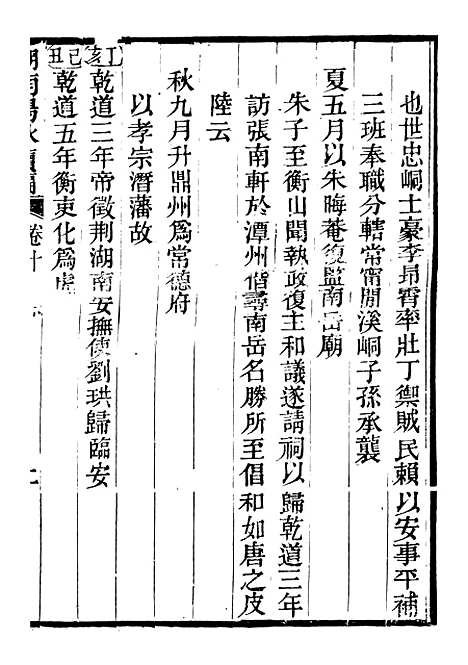 也世忠峒土豪李昂霄率壯丁禦賊民賴以安事平補
三班奉職分轄常甯閒溪峒子孫承襲
夏五月以朱晦菴復監南岳廟
朱子至衡山聞執政復主和議遂請祠以歸乾道三年
訪張南軒於潭州偕尋南岳名勝所至倡和如唐之皮
陸云
秋九月升鼎州爲常德府
以孝宗潛藩故
丁亥乾道三年帝徵荆湖南安撫使劉珙歸臨安
己丑乾道五年衡吏化爲虎
卷十